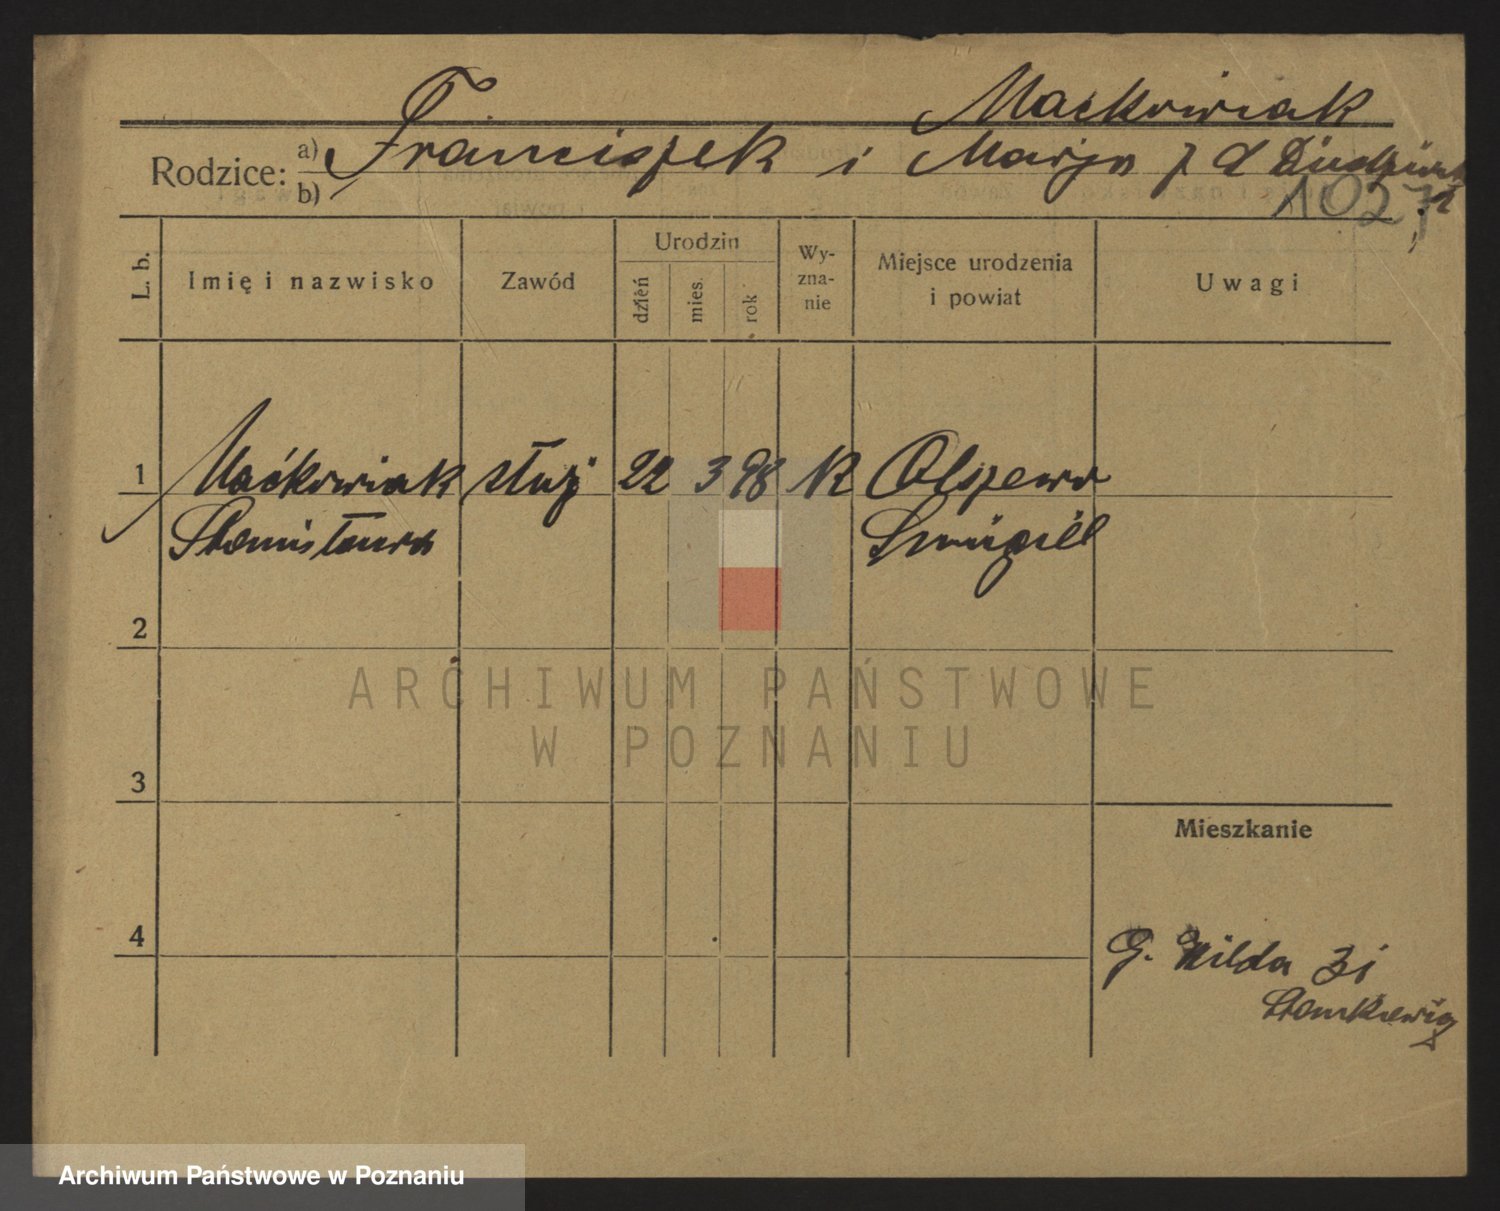 Maćkowiak
Rodzice: a) Franciszek i Marja z d
b)
1027
L. b.
Imię i nazwisko
Zawód
Urodzin
dzień
mies.
rok
Wy-
zna-
nie
Miejsce urodzenia
i powiat
Uwagi
1 Maćkowiak służ 22 3 98 K Olszewo
Stanisława Szmigiel
2
3
Mieszkanie
4
G. Wilda 31
Stankiewicz
ARCHIWUM PAŃSTWOWE
W POZNANIU
Archiwum Państwowe w Poznaniu